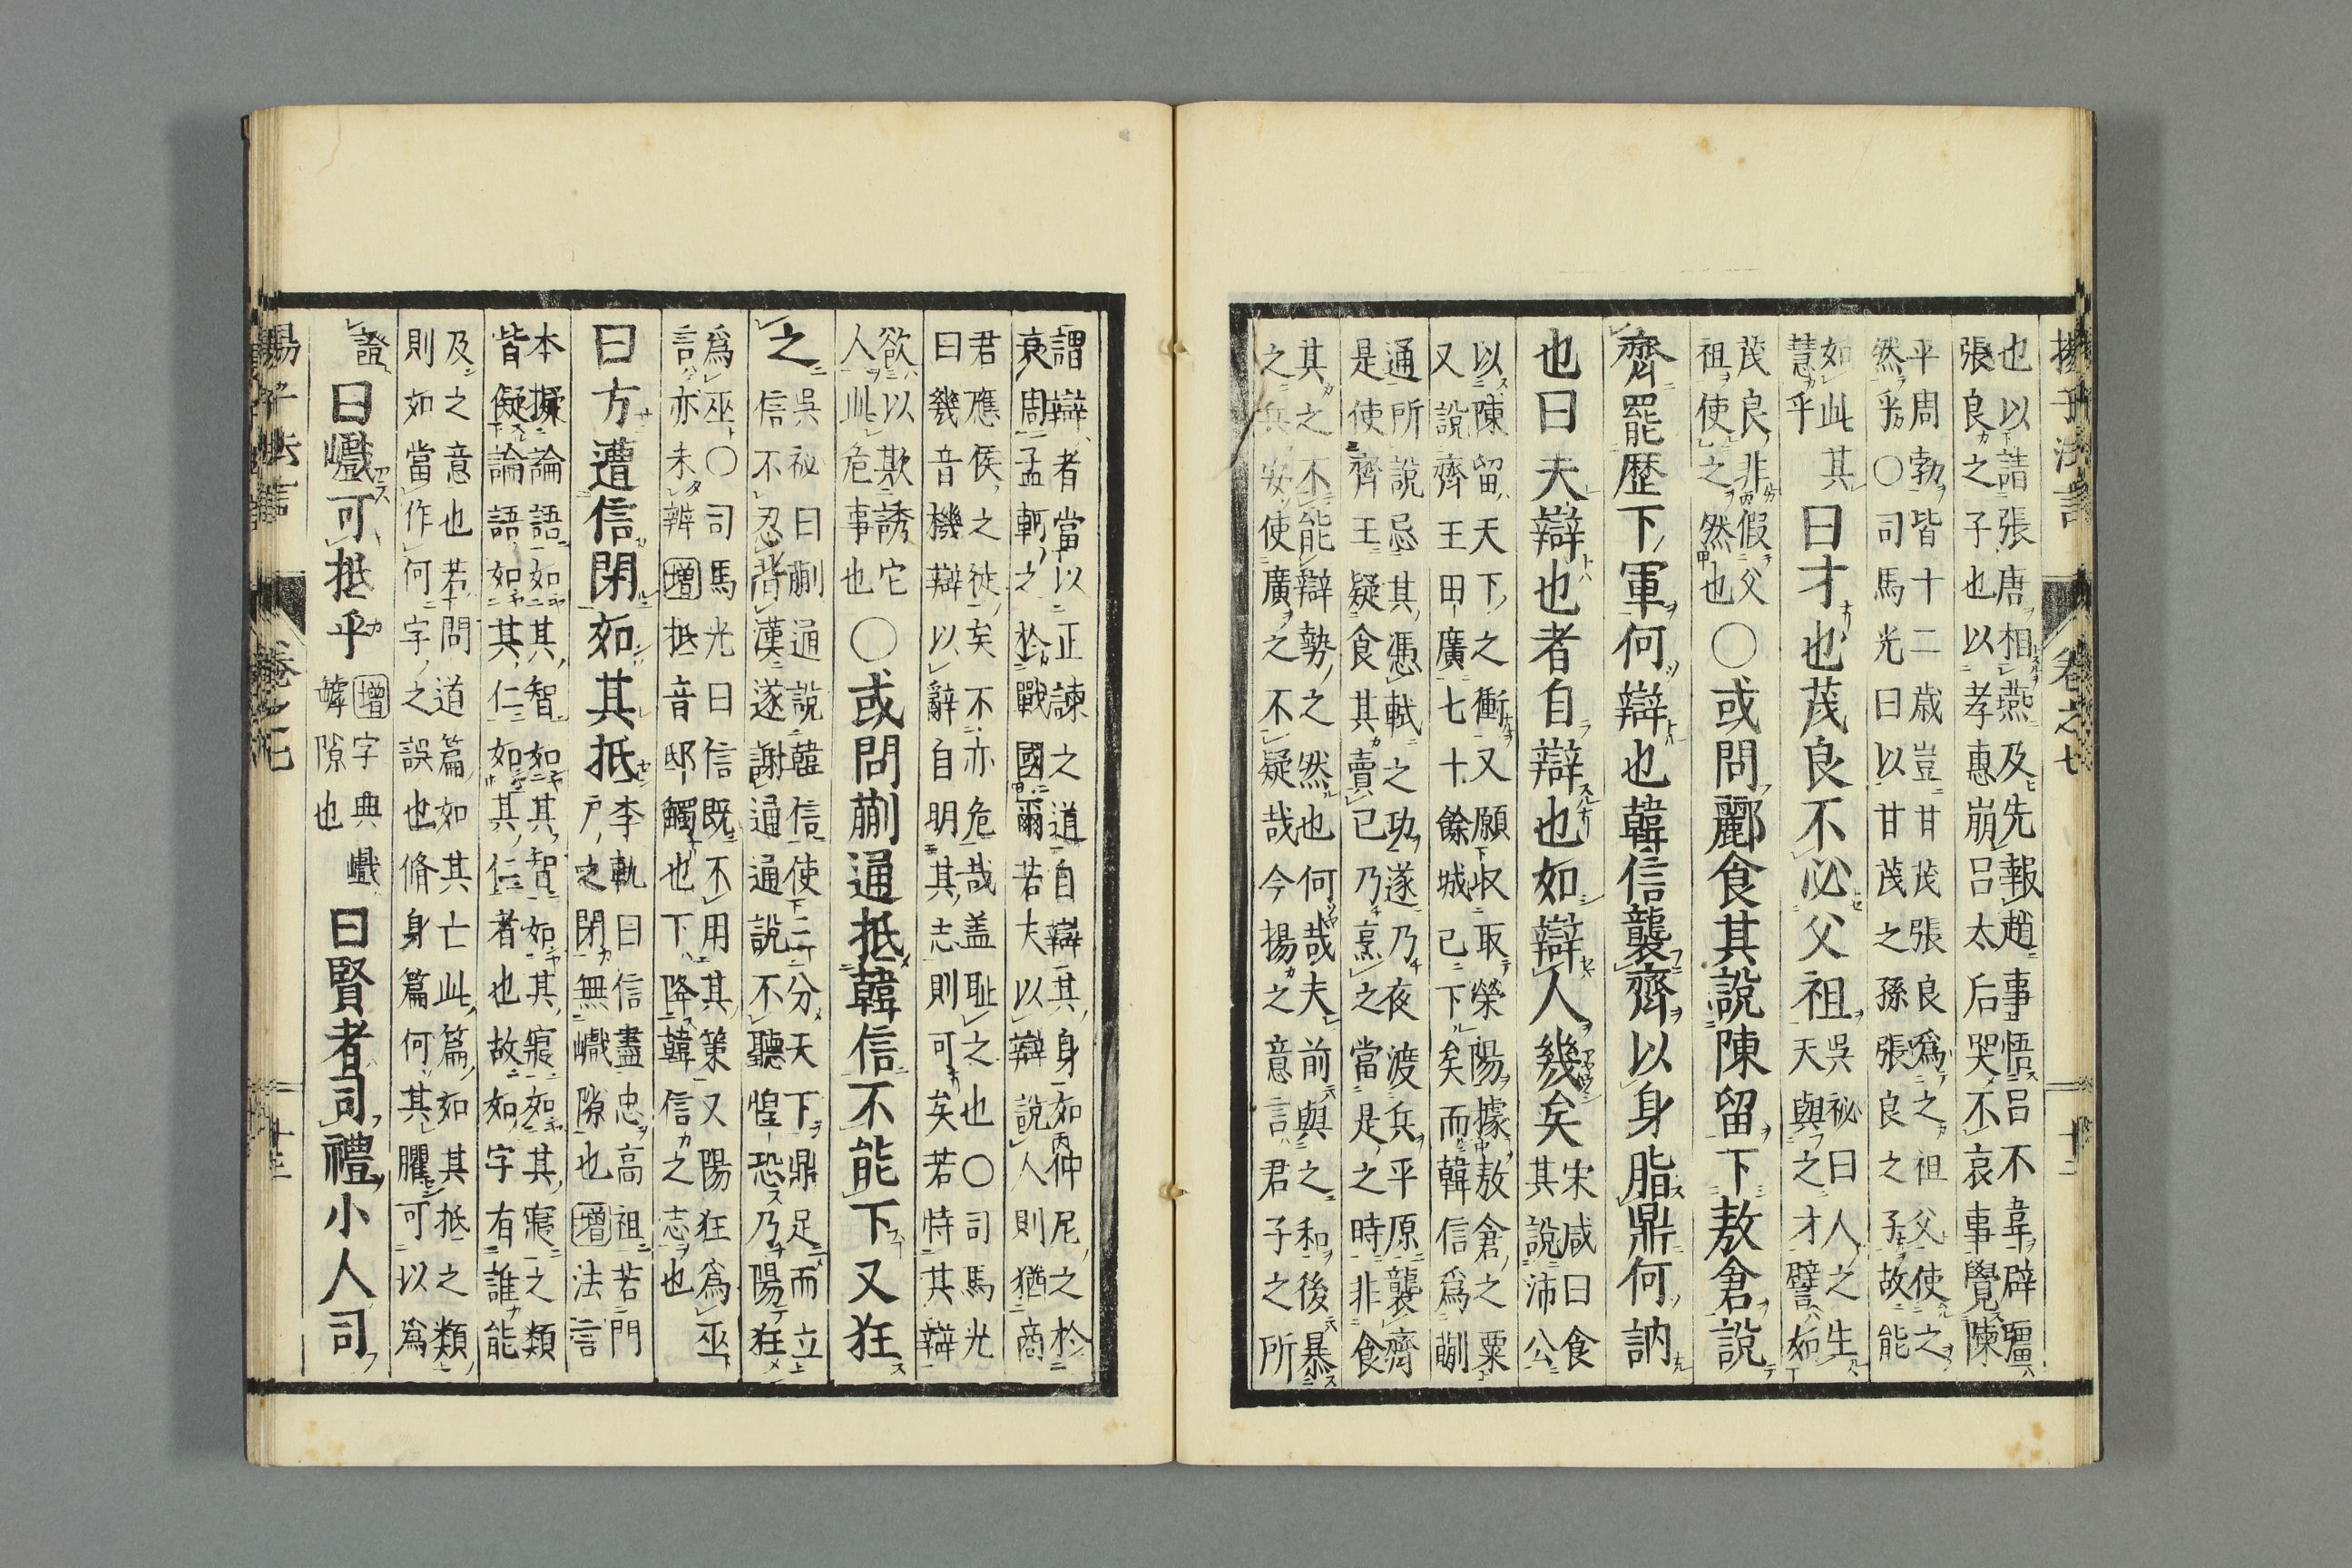 揚子法言
卷之七
十二
也以詰張唐相燕及先報趙事悟呂不韋辟疆
張良之子也以孝惠崩呂太后哭不哀事覺陳
平周勃皆十二歲豈甘茂張良爲之祖父使之
然乎○司馬光曰以甘茂之孫張良之子故能
如此其
慧乎
曰才也茂良不必父祖
吳祕曰人之生
天與之才譬如
茂良非假父
祖使之然也
○或問酈食其說陳留下敖倉說
齊罷歷下軍何辯也韓信襲齊以身脂鼎何訥
也曰夫辯也者自辯也如辯人幾矣
宋咸曰食
其說沛公
以陳留天下之衝又願收取滎陽據敖倉之粟
又說齊王田廣七十餘城已下矣而韓信爲蒯
通所說忌其憑軾之功遂乃夜渡兵平原襲齊
是使齊王疑食其賣已乃烹之當是之時非食
其之不能辯勢之然也何哉夫前與之和後暴
之兵安使廣之不疑哉今揚之意言君子之所
謂辯者當以正諫之道自辯其身如仲尼之於
衰周孟軻之於戰國爾若夫以辯說人則猶商
君應侯之徒矣不亦危哉盖耻之也○司馬光
曰幾音機辯以辭自明其志則可矣若恃其辯
欲以欺誘它
人此危事也
○或問蒯通抵韓信不能下又狂
之
吳祕曰蒯通說韓信使三分天下鼎足而立
信不忍背漢遂謝通通說不聽惶恐乃陽狂
爲巫○司馬光曰信既不用其策又陽狂爲巫
言亦未辨增抵音邸觸也下降韓信之志也
曰方遭信閉如其抵
李軌曰信盡忠高祖若門
戶之閉無巇隙也增法言
本擬論語如其智如其智如其寢如其寢之類
皆儗論語如其仁如其仁者也故如字有誰能
及之意也若問道篇如其亡此篇如其抵之類
則如當作何字之誤也脩身篇何其臞可以爲
證
曰巇可抵乎
增字典巇
罅隙也
曰賢者司禮小人司
揚子法言
卷之七
十三